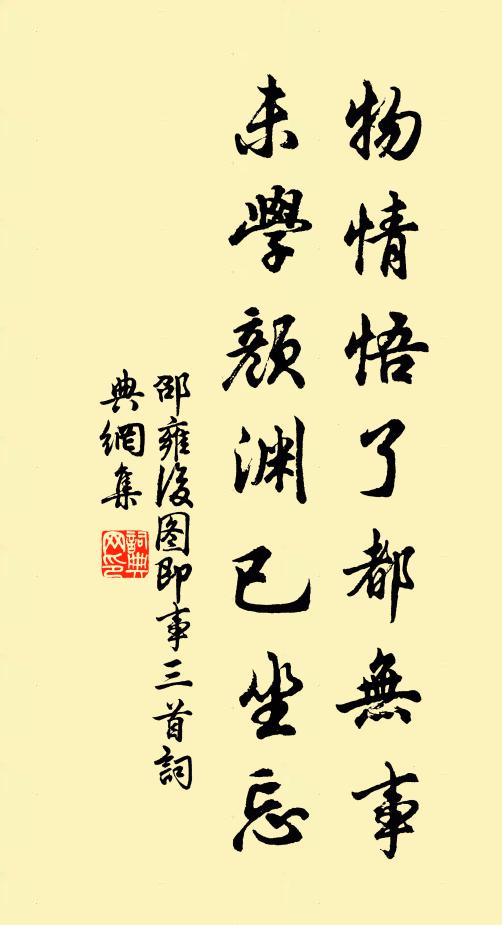 物情悟了都無事
未學顏渊已坐忘
邵雍後图即事三首詞
典網集
詞典网印